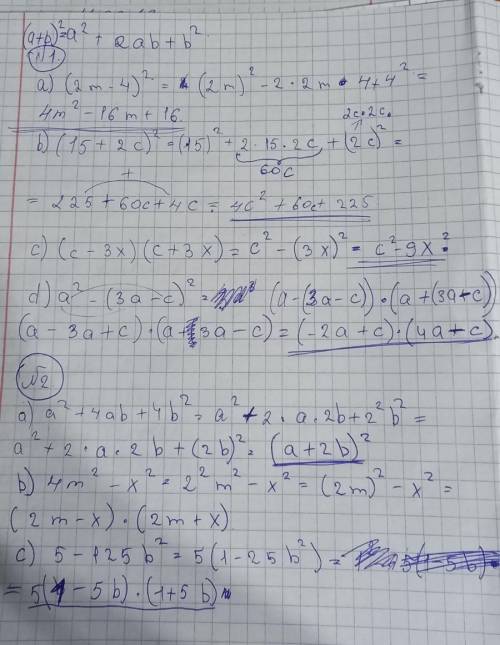 (a+b)²=a² + 2ab+b²
№1.
a) (2m-4)² = (2m)² - 2·2m·4+4² =
4m² - 16m + 16.
2c·2c.
b) (15 + 2c)² = (15)² + 2·15·2c + (2c)² =
60c
+
= 225 + 60c + 4c = 4c² + 60c + 225
c) (c - 3x)(c + 3x) = c² - (3x)² = c² - 9x².
d) a² - (3a - c)² = (a - (3a - c))·(a + (3a - c))
(a - 3a + c)·(a + 3a - c) = (-2a + c)·(4a - c).
№2.
a) a² + 4ab + 4b² = a² + 2·a·2b + 2²b² =
a² + 2·a·2b + (2b)² = (a + 2b)²
b) 4m² - x² = 2²m² - x² = (2m)² - x² =
(2m - x)·(2m + x)
c) 5 - 125b² = 5(1 - 25b²) =
= 5(1 - 5b)·(1 + 5b)